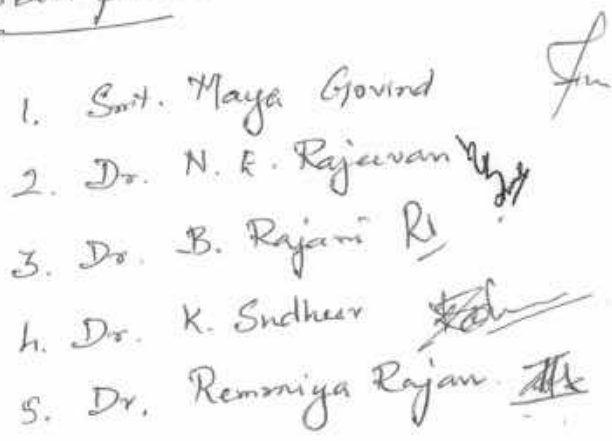 1. Smt. Maya Govind
2. Dr. N. E. Rajeevan
3. Dr. B. Rajani
4. Dr. K. Sudheer
5. Dr. Remmiya Rajan